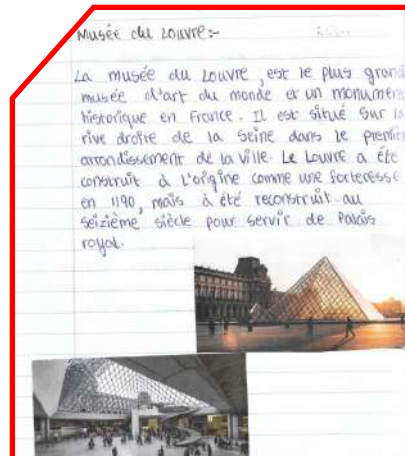 Musée du Louvre:-
La musée du Louvre, est le plus grand
musée d'art du monde et un monument
historique en France. Il est situé sur la
rive droite de la Seine dans le premier
arrondissement de la ville. Le Louvre a été
construit à l'origine comme une forteresse
en 1190, mais à été reconstruit au
seizième siècle pour servir de Palais
royal.